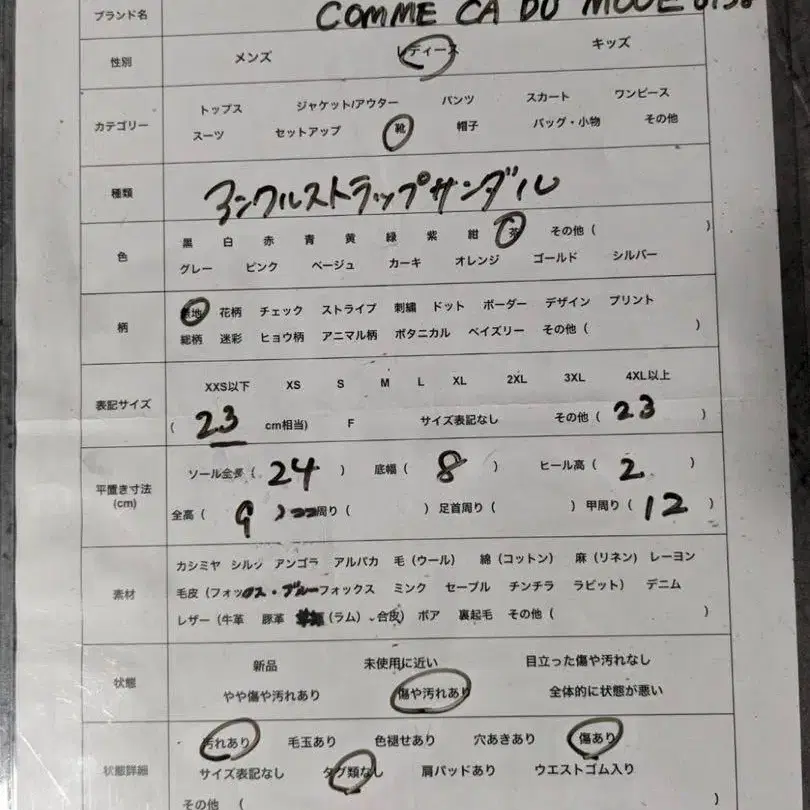 ブランド名 COMME CA DU MODE
性別 メンズ レディース キッズ
カテゴリー トップス ジャケット/アウター パンツ スカート ワンピース
スーツ セットアップ 靴 帽子 バッグ・小物 その他
種類 アンクルストラップサンダル
色 黒 白 赤 青 黄 緑 紫 紺 茶 その他 ( )
グレー ピンク ベージュ カーキ オレンジ ゴールド シルバー
柄 無地 花柄 チェック ストライプ 刺繍 ドット ボーダー デザイン プリント
総柄 迷彩 ヒョウ柄 アニマル柄 ボタニカル ペイズリー その他 ( )
表記サイズ XXS以下 XS S M L XL 2XL 3XL 4XL以上
( 23 cm相当) F サイズ表記なし その他 ( 23 )
平置き寸法 (cm) ソール全長 ( 24 ) 底幅 ( 8 ) ヒール高 ( 2 )
全高 ( 9 ) 周り ( ) 足首周り ( ) 甲周り ( 12 )
素材 カシミヤ シルク アンゴラ アルパカ 毛 (ウール) 綿 (コットン) 麻 (リネン) レーヨン
毛皮 (フォックス・ブルーフォックス ミンク セーブル チンチラ ラビット) デニム
レザー (牛革 豚革 (ラム) 合皮) ボア 裏起毛 その他 ( )
状態 新品 未使用に近い 目立った傷や汚れなし
やや傷や汚れあり 傷や汚れあり 全体的に状態が悪い
状態詳細 汚れあり 毛玉あり 色褪せあり 穴あきあり 傷あり
サイズ表記なし タグ類なし 肩パッドあり ウエストゴム入り
その他 ( )